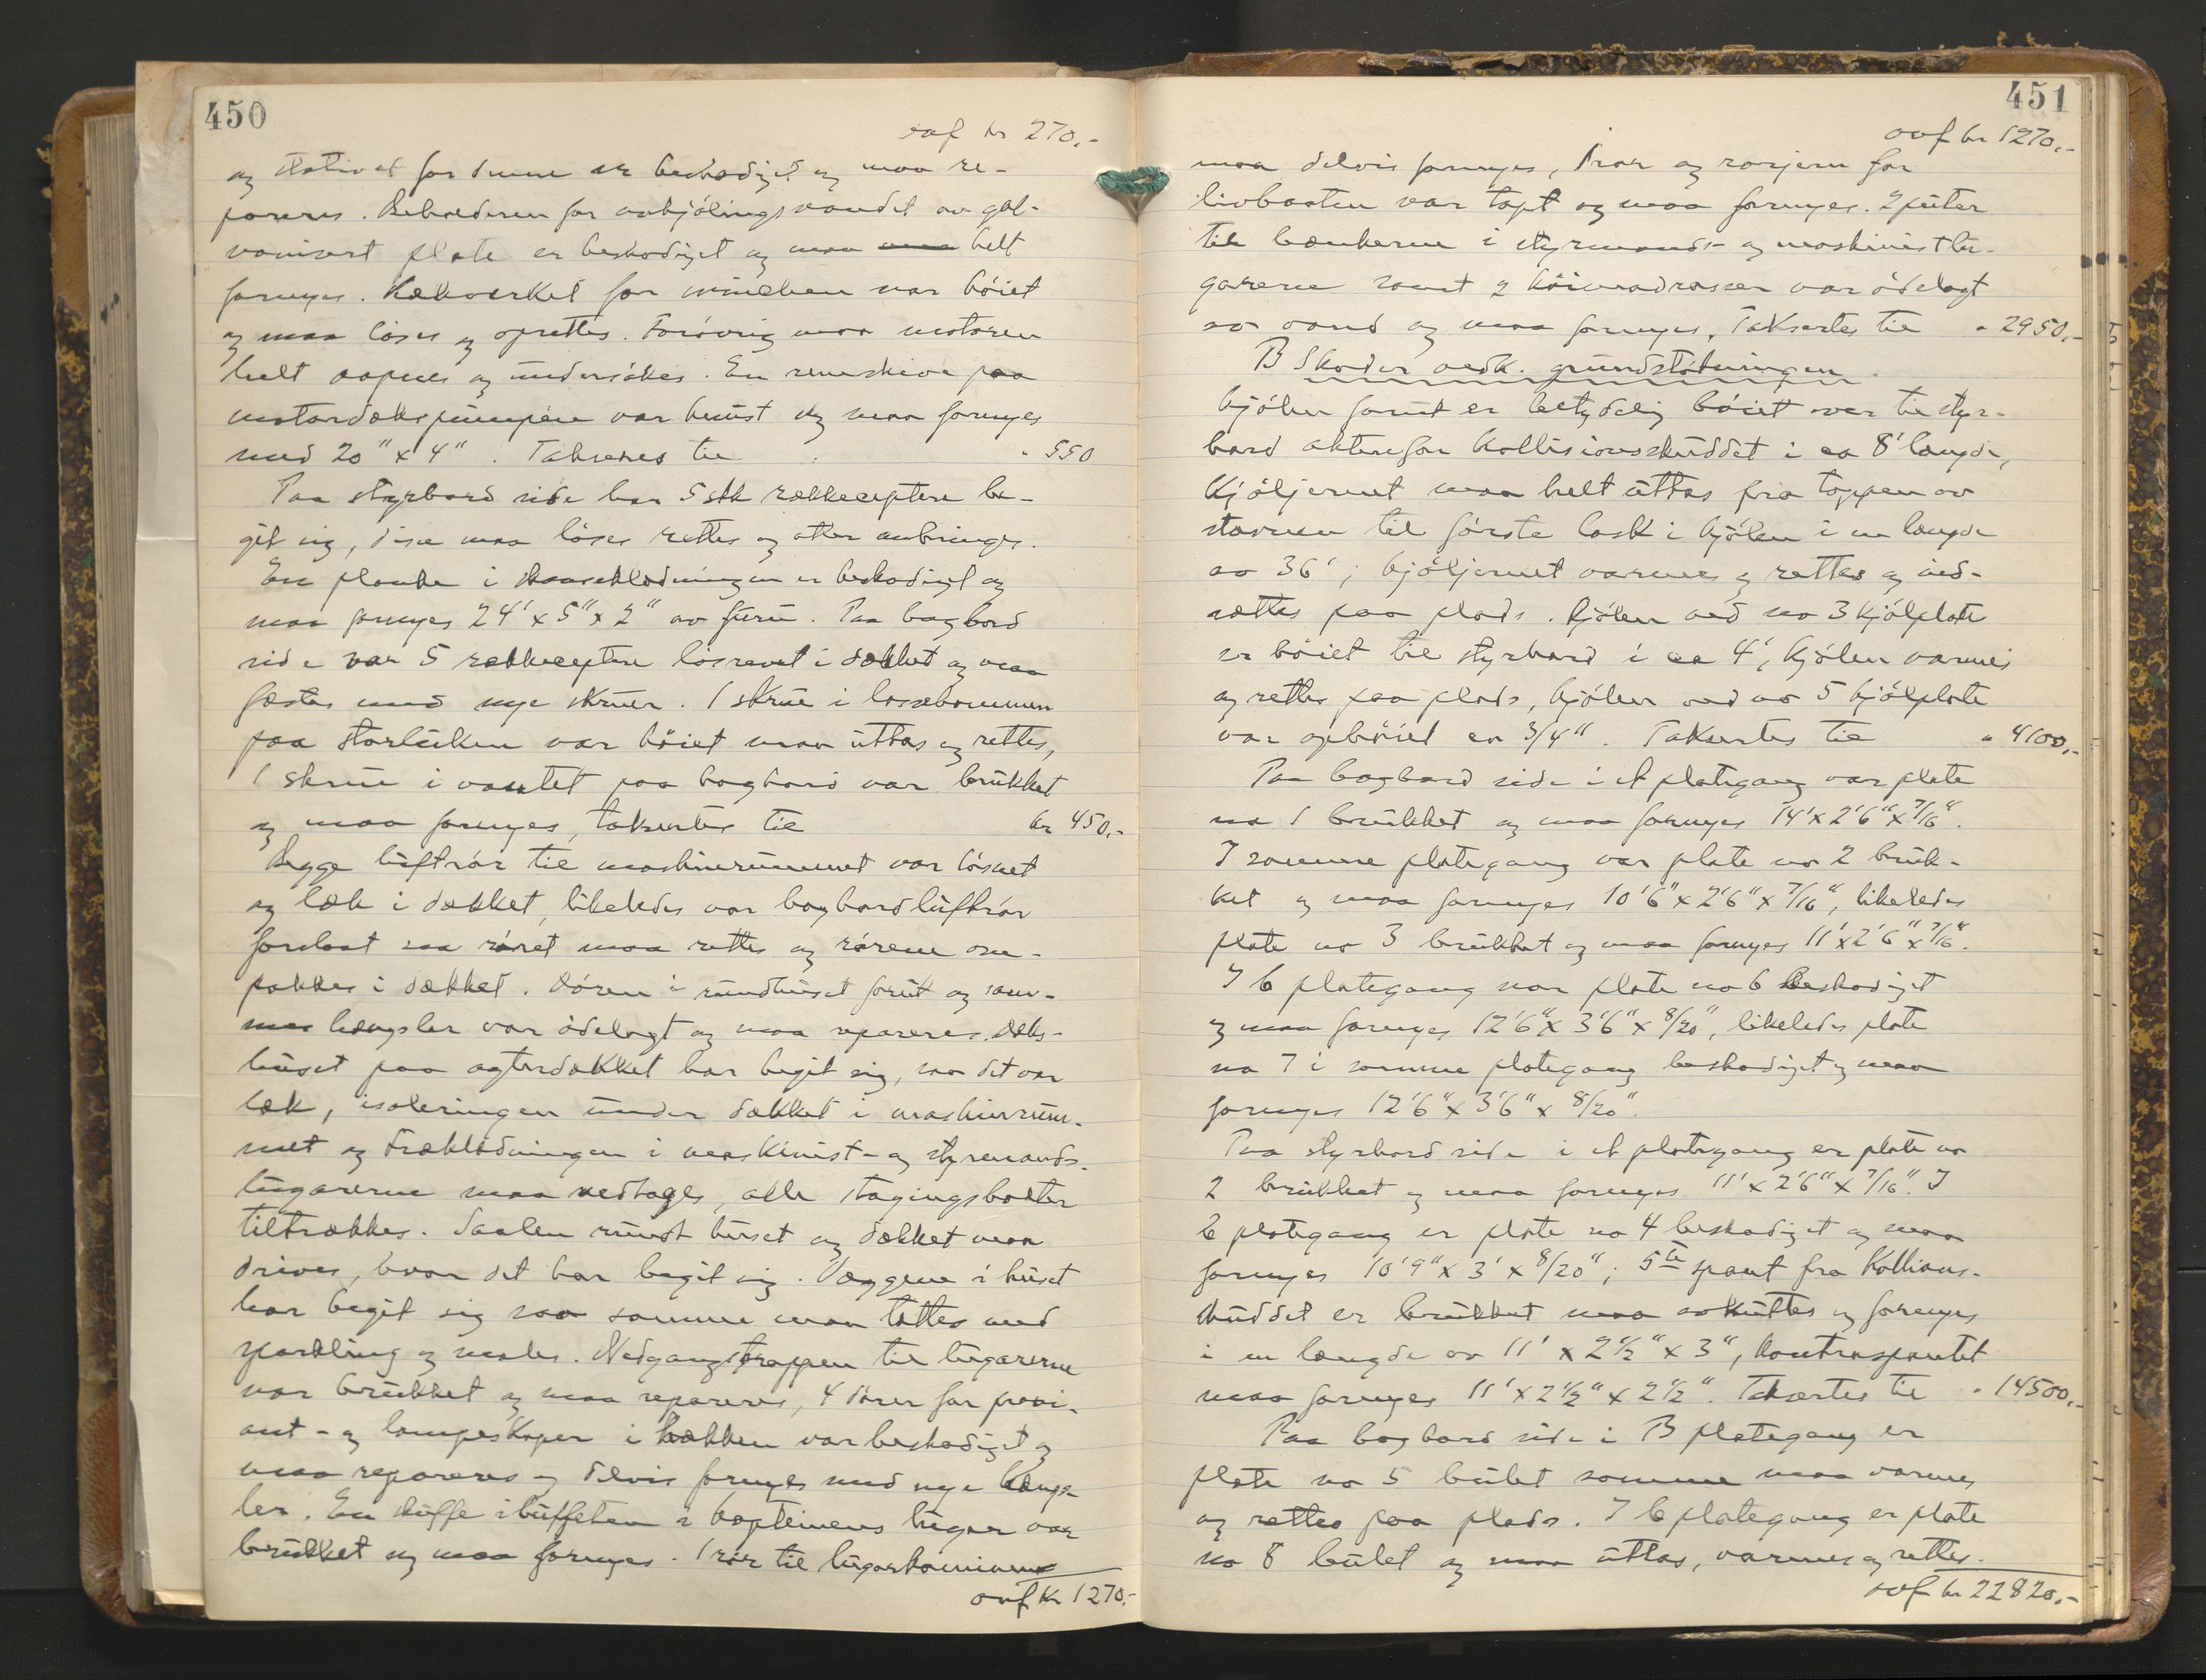 450
ovf kr 270.-
og stativet for denne er beskadiget og maa re-
pareres. Beholderen for avkjølingsvandet av gal-
vanisert plate er beskadiget og maa helt
fornyes. Rækverket for vinchen var bøiet
og maa løses og oprettes. Forøvrig maa motoren
helt aapnes og undersøkes. En remskive paa
motordækspumpen var knust og maa fornyes
med 20" x 4". Takseres til " 550
Paa styrbord side har 5 stk rækkeceptere be-
git sig, disse maa løses rettes og atter anbringes.
En planke i skanseklædningen er beskadiget og
maa fornyes 24' x 5" x 2" av furu. Paa bagbord
side var 5 rækkeceptere løsrevet i dækket og maa
fæstes med nye skruer. 1 skrue i lossebommen
paa storluken var bøiet maa uttas og rettes,
1 skrue i vantet paa bagbord var brukket
og maa fornyes, taksertes til kr 450.-
Begge luftrør til maskinrummet var løsnet
og læk i dækket, likeledes var bagbord luftrør
forslaat saa røret maa rettes og rørene om-
pakkes i dækket. Døren i rundhuset forut og sam-
mes hængsler var ødelagt og maa repareres. Dæks-
huset paa agterdækket har begit sig, saa det var
læk, isoleringen under dækket i maskinrum-
met og træklædningen i maskinist- og styrmands-
lugarerne maa nedtages, alle stagingsbolter
tiltrækkes. Saalen rundt huset og dækket maa
drives, hvor det har begit sig. Væggene i huset
har begit sig saa samme maa tættes med
sparkling og males. Nedgangstrappen til lugarerne
var brukket og maa repareres, 4 dører for provi-
ant- og lampeskaper i hækken var beskadiget og
maa repareres og delvis fornyes med nye hængs-
ler. En skuffe i buffeten i kapteinens lugar var
brukket og maa fornyes. 1 rør til lugarkaminen
ovf kr 1270.-
451
ovf kr 1270.-
maa delvis fornyes, Aarer og rorjern for
livbaaten var tapt og maa fornyes. 2 puter
til bænkerne i styrmands- og maskinistlu-
garerne samt 2 køimadrasser var ødelagt
av vand og maa fornyes. Taksertes til " 2950.-
B Skader vedk. grundstøtningen.
Kjølen forut er betydelig bøiet over til styr-
bord aktenfor kollisionsskuddet i ca 8' længde,
Kjøljernet maa helt uttas fra toppen av
stavnen til første lask i kjølen i en længde
av 36'; kjøljernet varmes og rettes og ind-
sættes paa plads. Kjølen ved no 3 kjølplate
er bøiet til styrbord i ca 4', kjølen varmes
og rettes paa plads, kjølen ved no 5 kjølplate
var opbøiet ca 3/4". Taksertes til " 4100.-
Paa bagbord side i A plategang var plate
no 1 brukket og maa fornyes 14' x 2'6" x 7/16".
I samme plategang var plate no 2 bruk-
ket og maa fornyes 10'6" x 2'6" x 7/16", likeledes
plate no 3 brukket og maa fornyes 11' x 2'6" x 7/16".
I C plategang var plate no 6 beskadiget
og maa fornyes 12'6" x 3'6" x 8/20", likeledes plate
no 7 i samme plategang beskadiget og maa
fornyes 12'6" x 3'6" x 8/20".
Paa styrbord side i A plategang er plate no
2 brukket og maa fornyes 11' x 2'6" x 7/16". I
C plategang er plate no 4 beskadiget og maa
fornyes 10'9" x 3' x 8/20"; 5te spant fra Kollions-
skuddet er brukket maa avkuttes og fornyes
i en længde av 11' x 2 1/2" x 3", kontraspantet
maa fornyes 11' x 2 1/2" x 2 1/2". Taksertes til " 14500.-
Paa bagbord side i B plategang er
plate no 5 bulet samme maa varmes
og rettes paa plads. I C plategang er plate
no 8 bulet og maa uttas, varmes og rettes.
ovf kr 22820.-